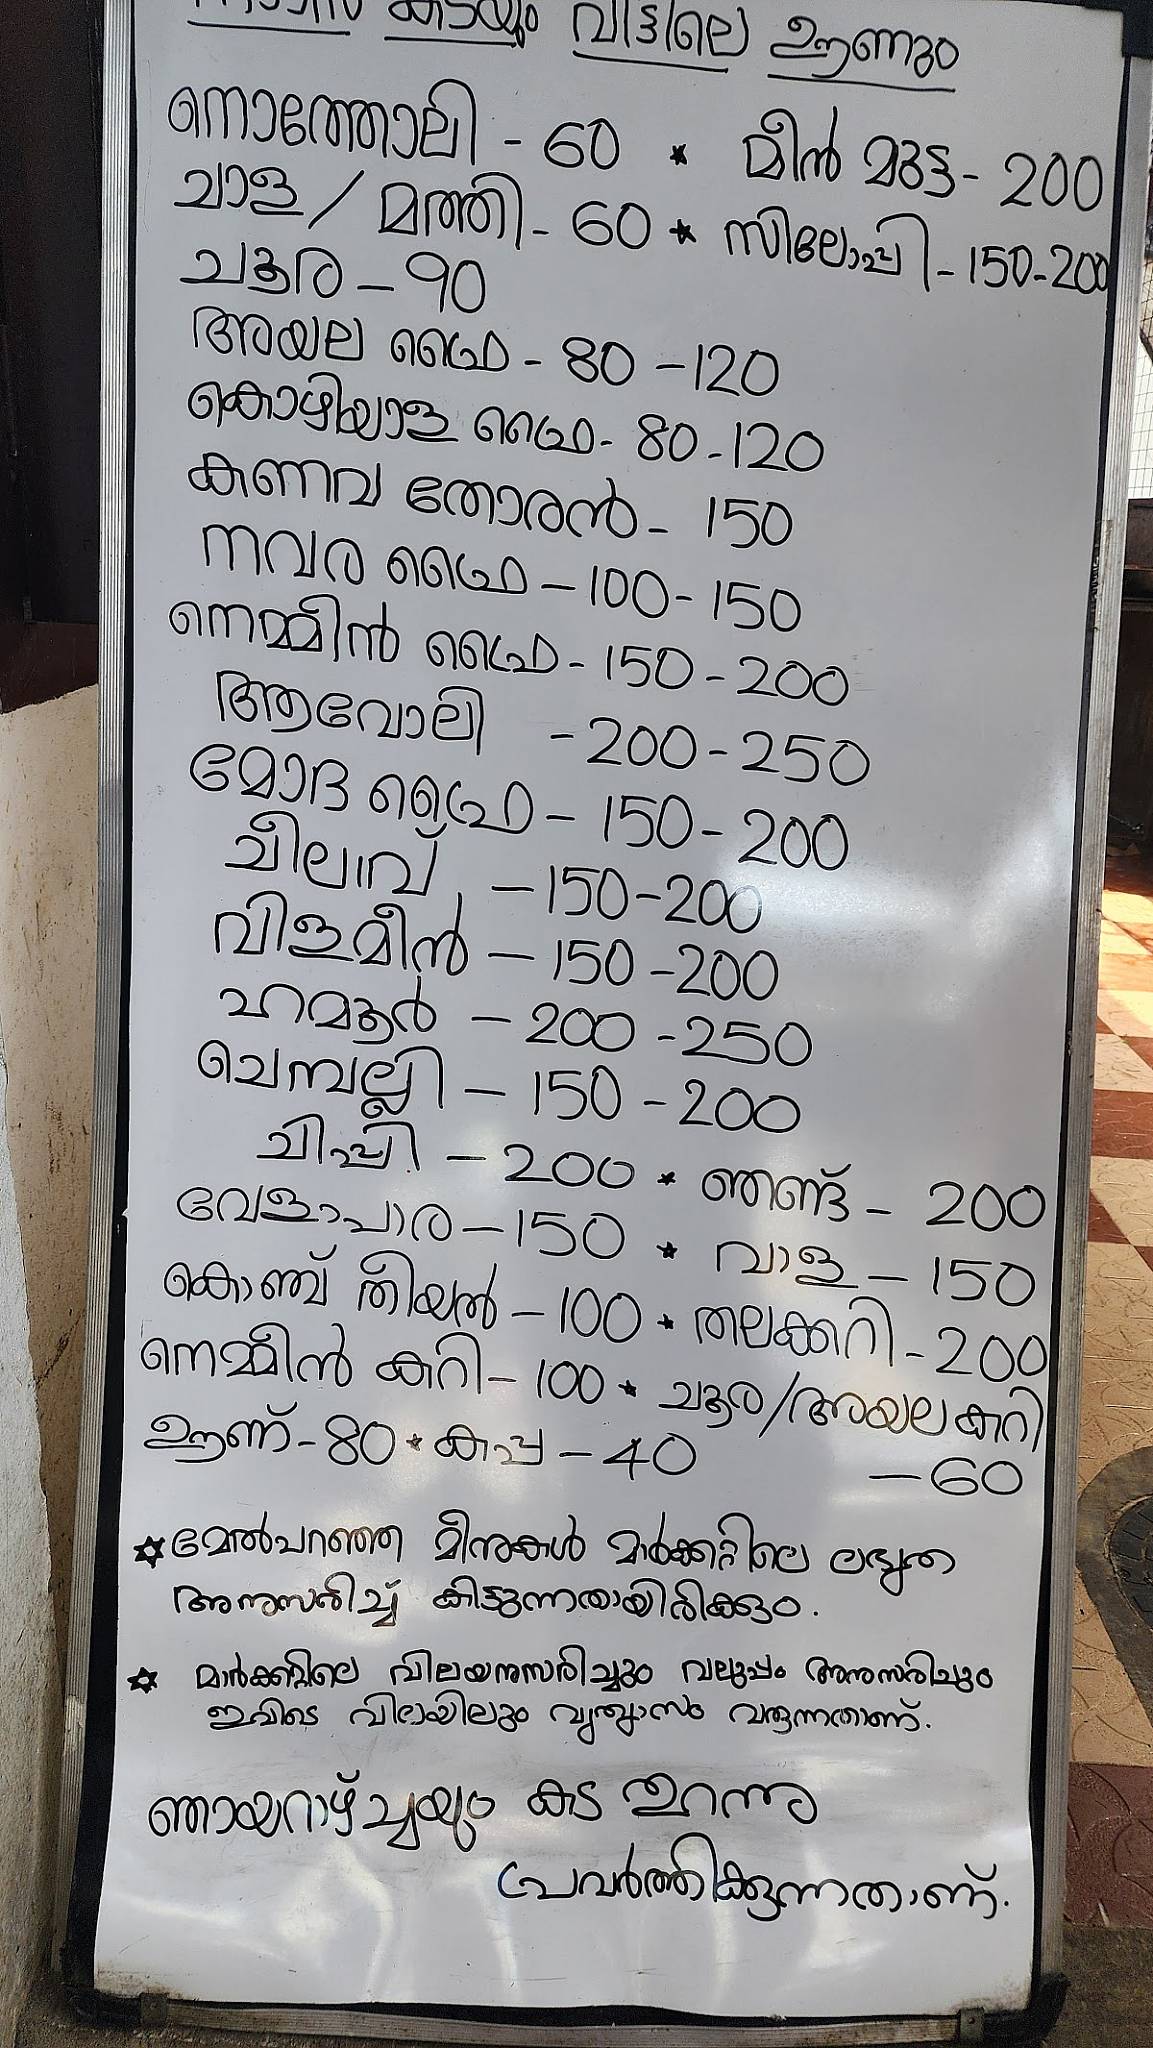 കടയും വീട്ടിലെ ഊണും
നൊത്തോലി - 60 * മീൻ മുട്ട - 200
ചാള / മത്തി - 60 * സിലോപ്പി - 150-200
ചൂര - 90
അയല ഫ്രൈ - 80 - 120
കൊഴിയാള ഫ്രൈ - 80 - 120
കണവ തോരൻ - 150
നവര ഫ്രൈ - 100 - 150
നെമ്മീൻ ഫ്രൈ - 150 - 200
ആവോലി - 200 - 250
മോദ ഫ്രൈ - 150 - 200
ചീലാവ് - 150 - 200
വിളമീൻ - 150 - 200
ഹമൂർ - 200 - 250
ചെമ്പല്ലി - 150 - 200
ചിപ്പി - 200 * ഞണ്ട് - 200
വേളാപാര - 150 * വാള - 150
കൊഞ്ച് തീയൽ - 100 * തലക്കറി - 200
നെമ്മീൻ കറി - 100 * ചൂര/അയല കറി
ഊണ് - 80 * കപ്പ - 40 - 60
* മേൽപറഞ്ഞ മീനുകൾ മാർക്കറ്റിലെ ലഭ്യത
അനുസരിച്ച് കിട്ടുന്നതായിരിക്കും.
* മാർക്കറ്റിലെ വിലയനുസരിച്ചും വലുപ്പം അനുസരിച്ചും
ഇവിടെ വിലയിലും വ്യത്യാസം വരുന്നതാണ്.
ഞായറാഴ്ച്ചയും കട തുറന്നു
പ്രവർത്തിക്കുന്നതാണ്.